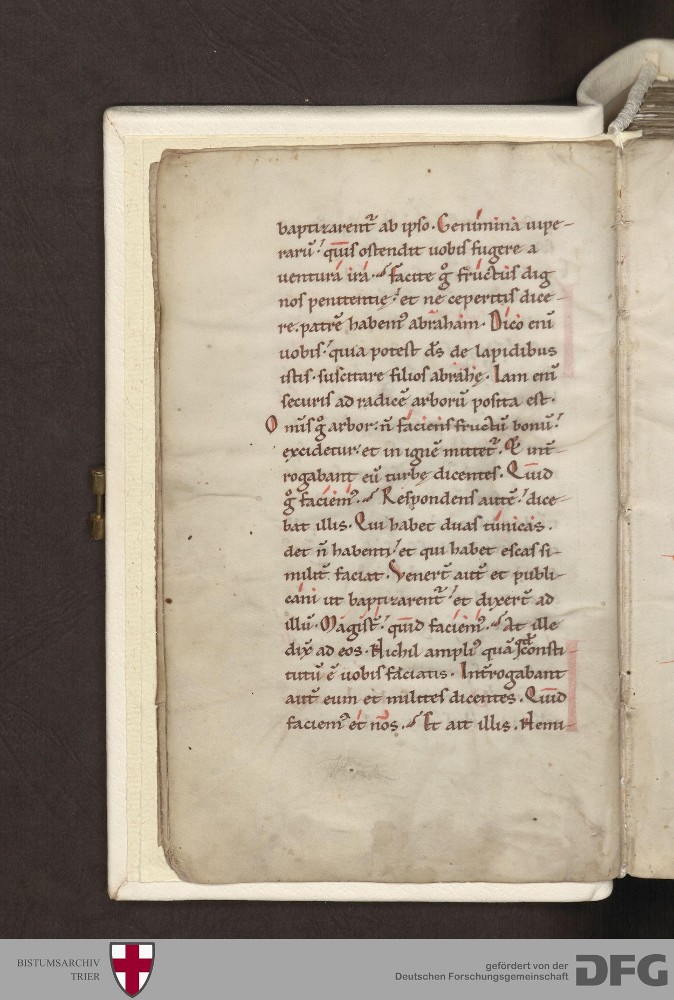 baptizarent᷑ ab ipso. Genimina uipe-
rarū! quis ostendit uobis fugere a
uentura ira. facite gͦ fructus dig
nos penitentię! et ne ceperitis dice-
re. patrē habem᷒ abraham. Dico enī
uobis! quia potest d̄s de lapidibus
istis. suscitare filios abrahę. Iam enī
securis ad radicē arborū posita est.
Omīs gͦ arbor. n̄ faciens fructū bonū!
excidetur! et in ignē mittet᷑. Et int̄-
rogabant eū turbę dicentes. Quid
gͦ faciem᷒. Respondens autē! dice-
bat illis. Qui habet duas tunicas.
det n̄ habenti! et qui habet escas si-
milit᷑ faciat. Venert̄ aut̄ et publi-
cani ut baptizarent᷑! et dixert̄ ad
illū. Magist̄! quid faciem᷒. At ille
dix̄ ad eos. Nichil ampli᷒ quā qd consti-
tutū ē uobis faciatis. Int̄rogabant
aut̄ eum et milites dicentes. Quid
faciem᷒ et nos. Et ait illis. Nemi-
BISTUMSARCHIV
TRIER
gefördert von der
Deutschen Forschungsgemeinschaft
DFG